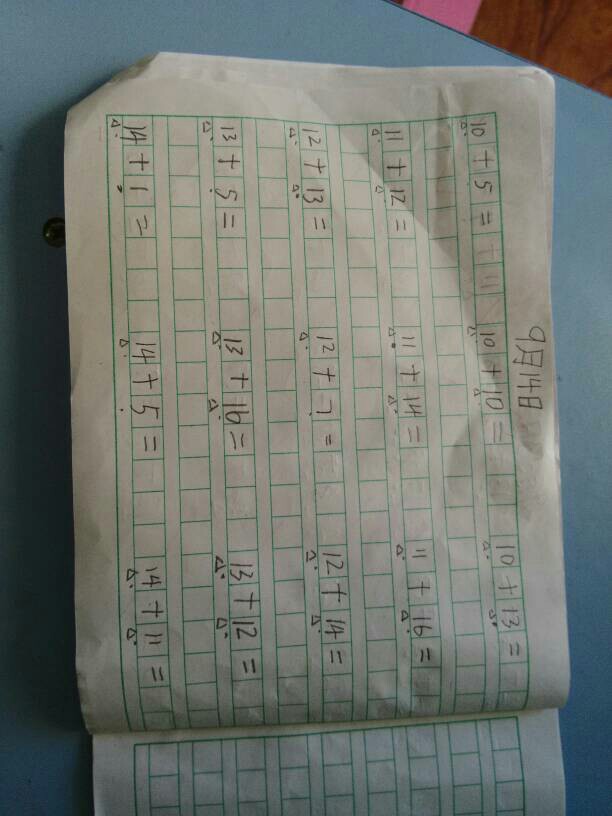 9月14日
10 + 5 = 10 + 10 = 10 + 13 =
11 + 12 = 11 + 14 = 11 + 16 =
12 + 13 = 12 + 7 = 12 + 14 =
13 + 5 = 13 + 16 = 13 + 12 =
14 + 1 = 14 + 5 = 14 + 11 =